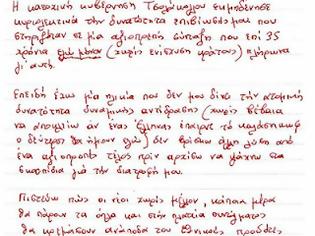 Η κατοχική κυβέρνηση Τσολάκογλου εκμηδένησε
κυριολεκτικά την δυνατότητα επιβίωσής μου που
στηριζόταν σε μία αξιοπρεπή σύνταξη που επί 35
χρόνια εγώ μόνον (χωρίς ενίσχυση κράτους) πλήρωνα
γι' αυτή.
Επειδή έχω μια ηλικία που δεν μου δίνει την ατομική
δυνατότητα δυναμικής αντίδρασης (χωρίς βέβαια
να αποκλείω αν ένας έλληνας έπαιρνε το καλάσνικωφ
ο δεύτερος θα ήμουν εγώ) δεν βρίσκω άλλη λύση από
ένα αξιοπρεπές τέλος πριν αρχίσω να ψάχνω στα
σκουπίδια για την διατροφή μου.
Πιστεύω πως οι νέοι χωρίς μέλλον, κάποια μέρα
θα πάρουν τα όπλα και στην πλατεία συντάγματος
θα κρεμάσουν ανάποδα τους εθνικούς προδότες